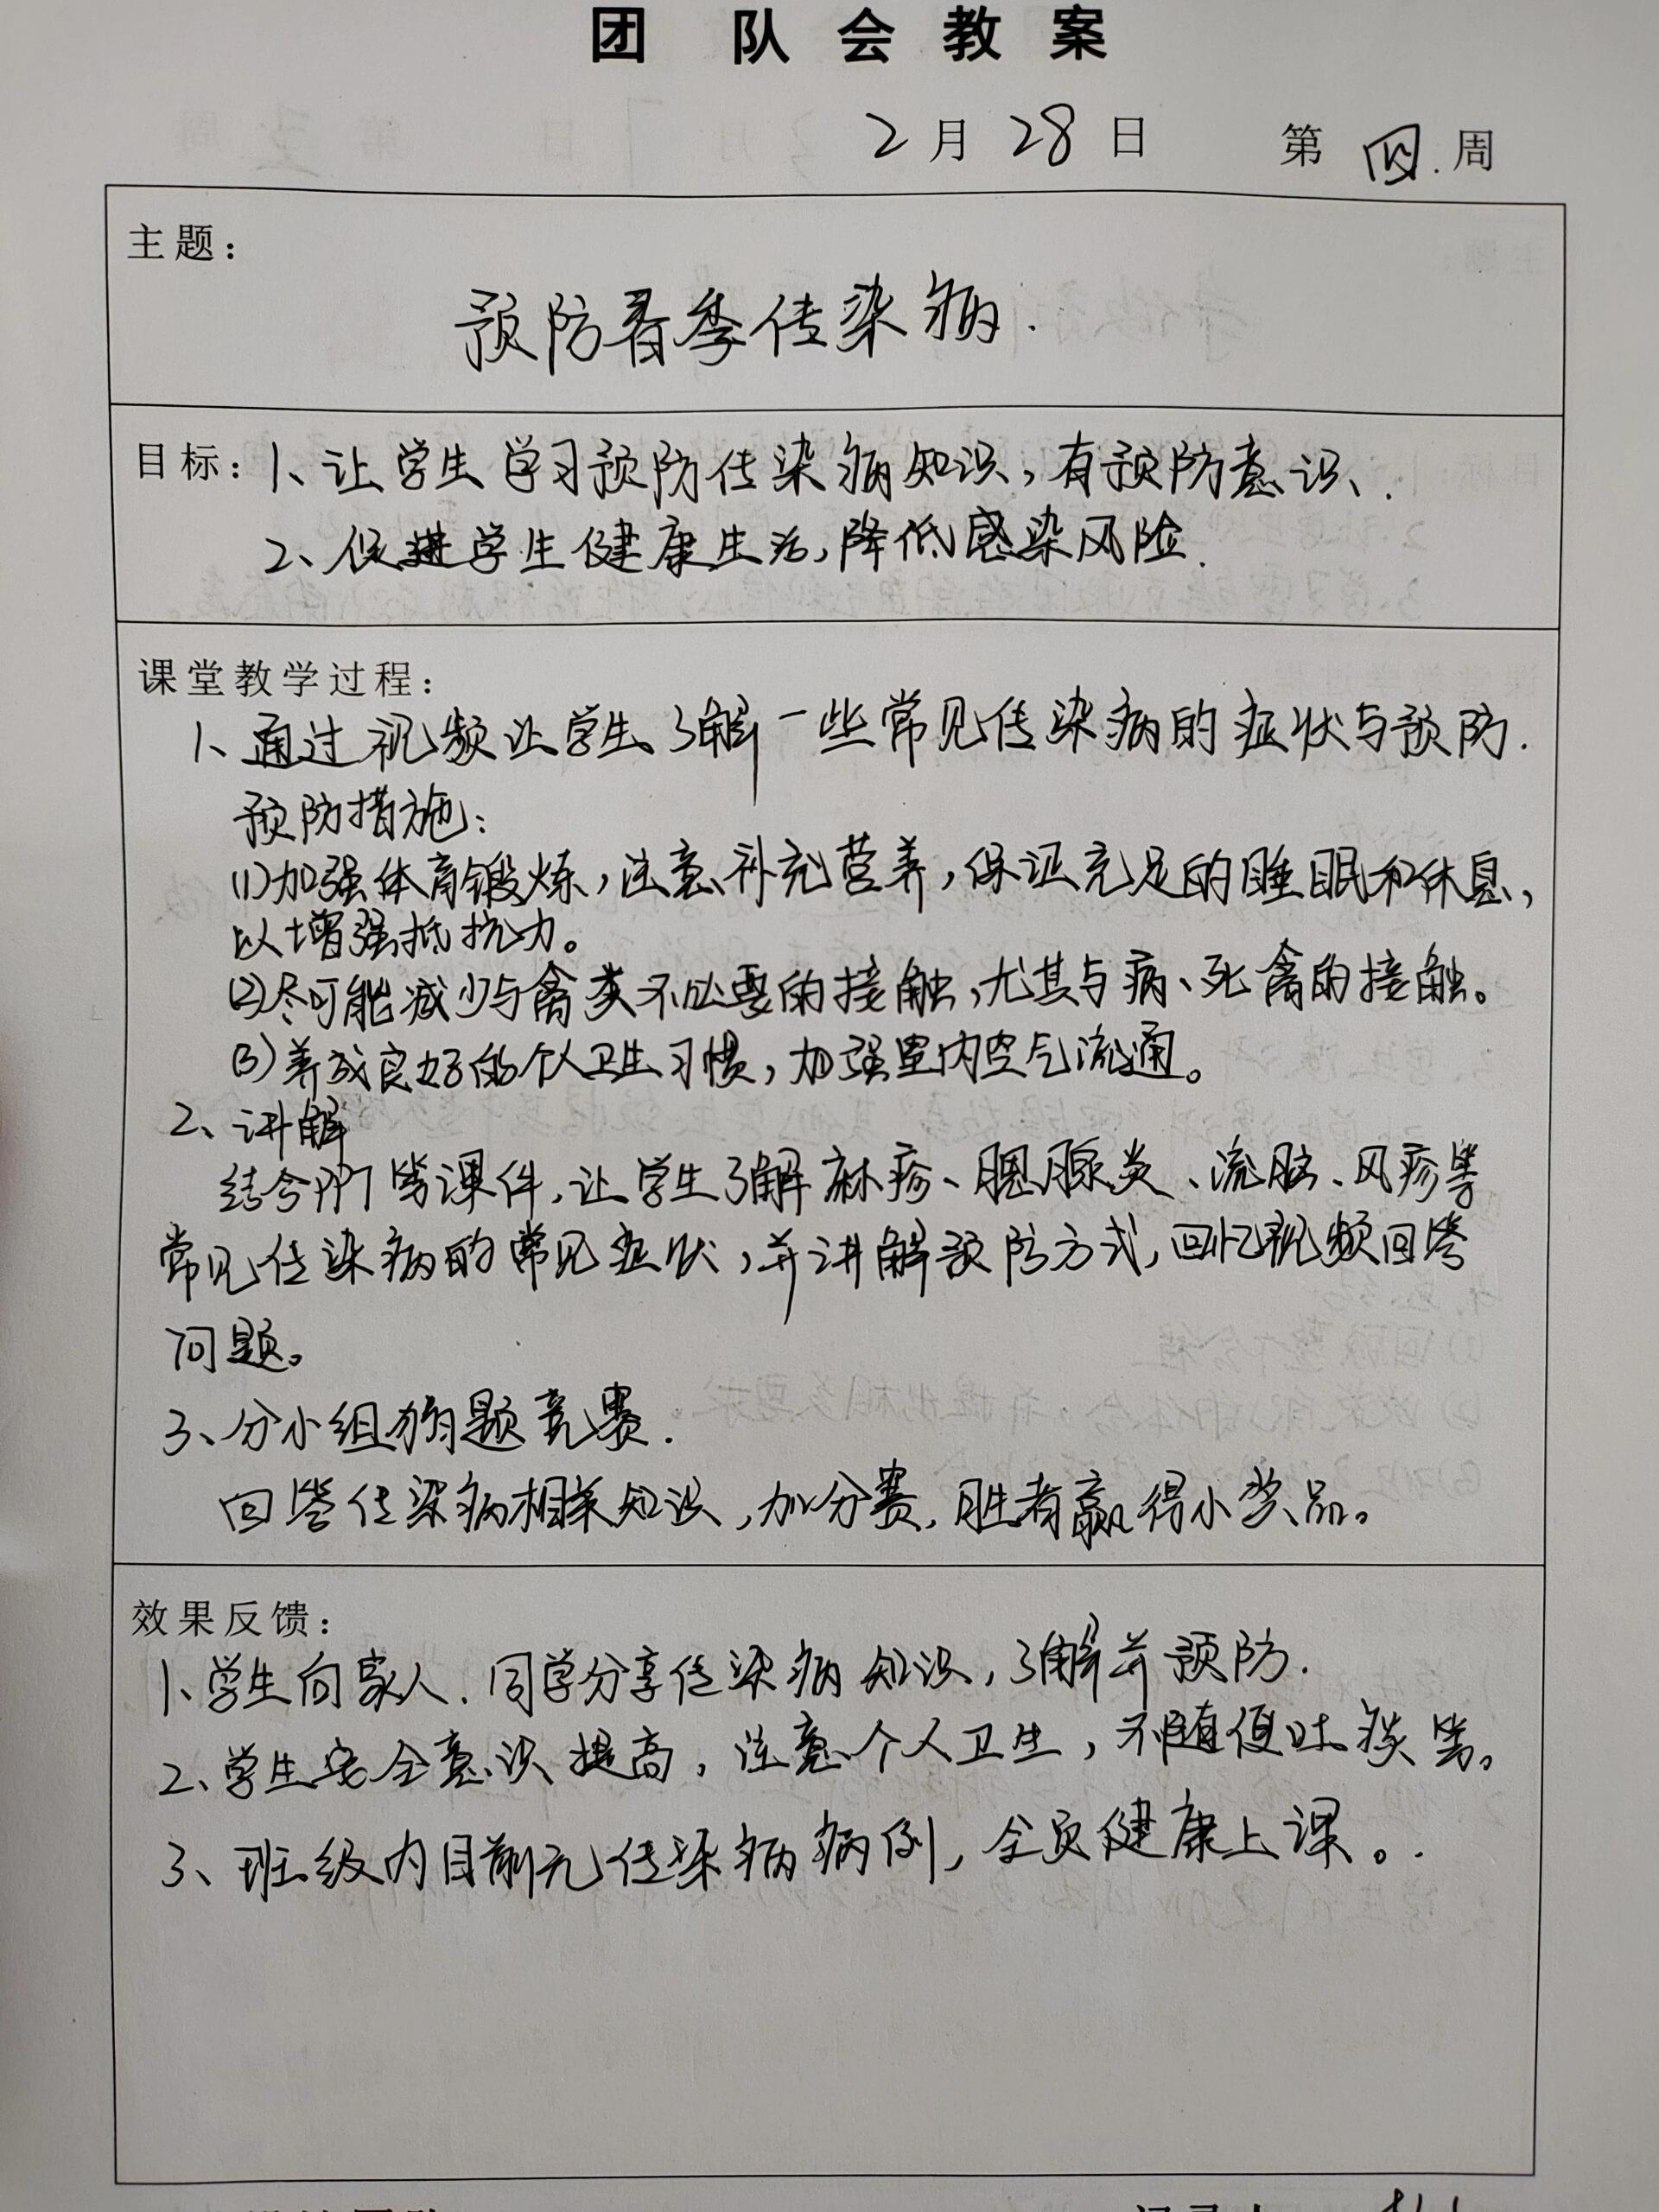 团 队 会 教 案
2月28日 第四.周
主题：
预防春季传染病.
目标：1、让学生学习预防传染病知识，有预防意识、.
2、促进学生健康生活，降低感染风险.
课堂教学过程：
1、通过视频让学生了解一些常见传染病的症状与预防.
预防措施：
(1)加强体育锻炼，注意补充营养，保证充足的睡眠和休息，
以增强抵抗力。
(2)尽可能减少与禽类不必要的接触，尤其与病、死禽的接触。
(3)养成良好的个人卫生习惯，加强室内空气流通。
2、讲解
结合PPT等课件，让学生了解麻疹、腮腺炎、流脑、风疹等
常见传染病的常见症状，并讲解预防方式，回忆视频回答
问题。
3、分小组猜题竞赛.
回答传染病相关知识，加分赛，胜者赢得小奖品。
效果反馈：
1、学生向家人.同学分享传染病知识，了解并预防.
2、学生安全意识提高，注意个人卫生，不随便吐痰等。
3、班级内目前无传染病病例，全员健康上课。.